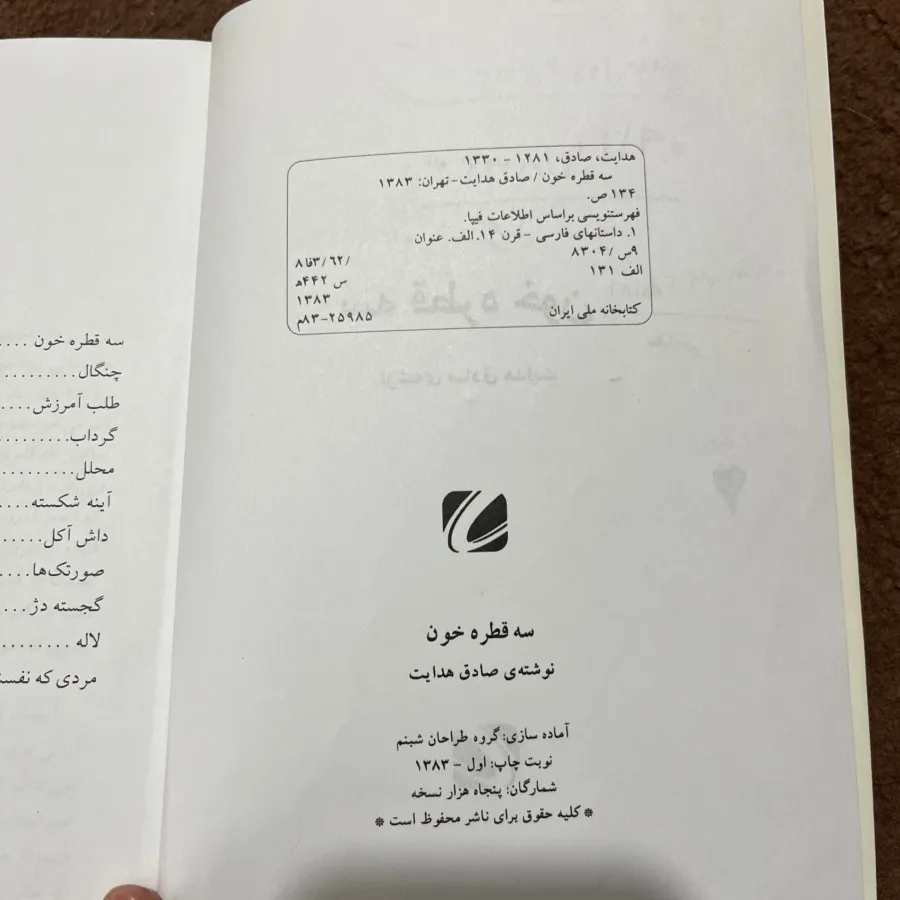 هدایت، صادق، ۱۲۸۱ - ۱۳۳۰
سه قطره خون / صادق هدایت - تهران: ۱۳۸۳
۱۳۴ ص.
فهرستنویسی براساس اطلاعات فیپا.
۱. داستانهای فارسی - قرن ۱۴. الف. عنوان
۹س / ۸۳۰۴ /۶۲/ ۳فا۸
الف ۱۳۱ س ۴۴۲ﻫ
۱۳۸۳
کتابخانه ملی ایران ۲۵۹۸۵-۸۳م
سه قطره خون
نوشته‌ی صادق هدایت
آماده سازی: گروه طراحان شبنم
نوبت چاپ: اول - ۱۳۸۳
شمارگان: پنجاه هزار نسخه
* کلیه حقوق برای ناشر محفوظ است *
سه قطره خون ....
چنگال..........
طلب آمرزش....
گرداب.........
محلل..........
آینه شکسته....
داش آکل......
صورتک‌ها....
گجسته دژ...
لاله ........
مردی که